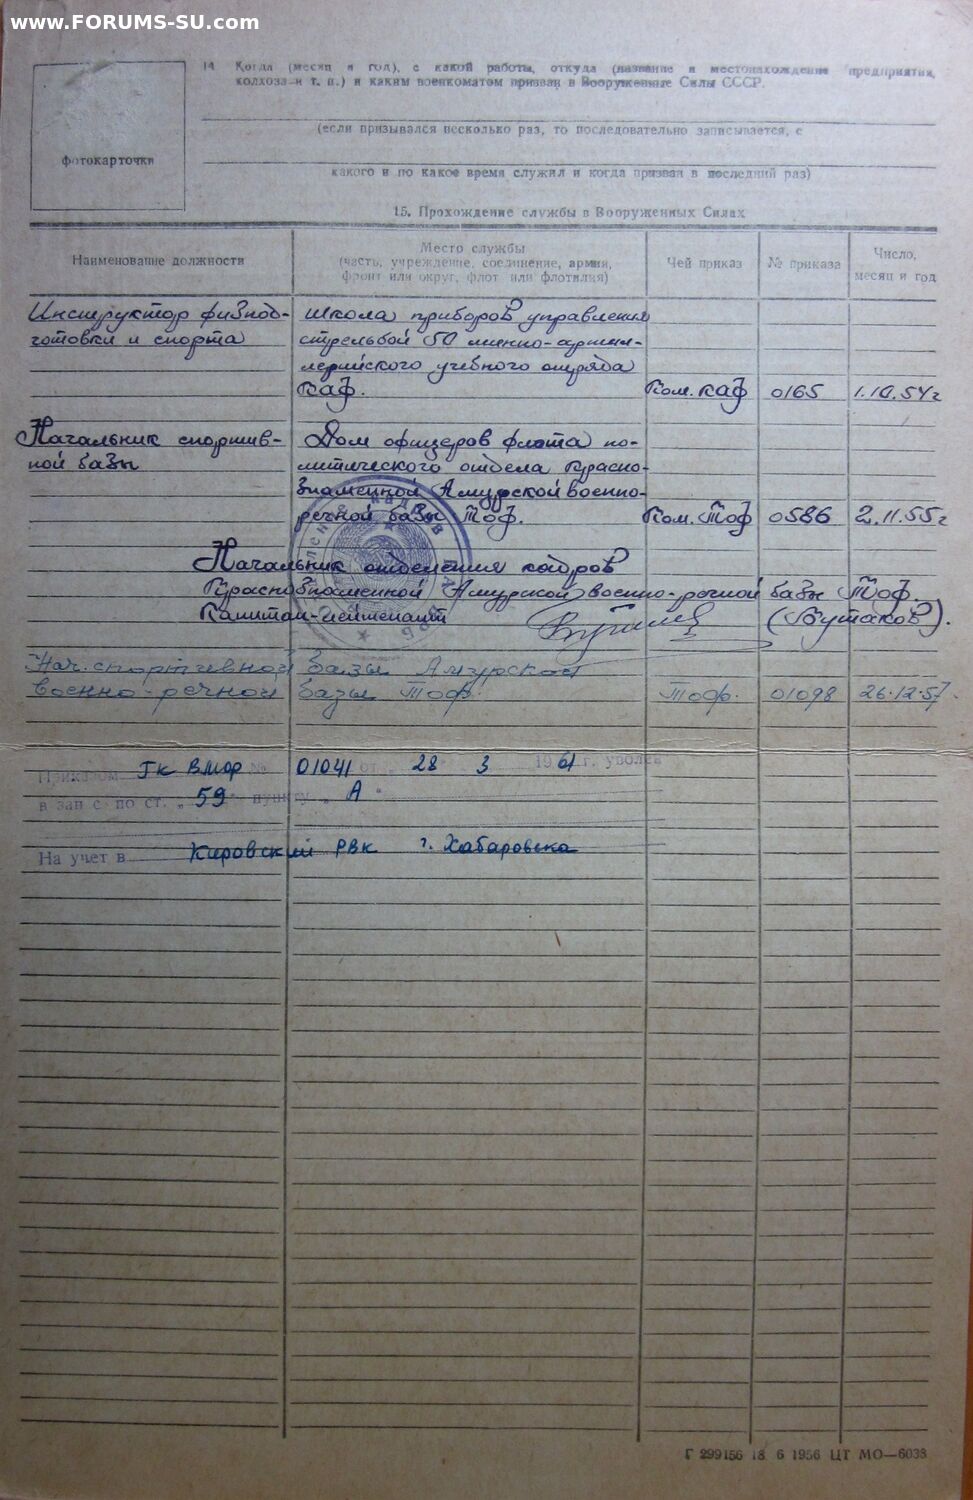 www.FORUMS-SU.com
14 Когда (месяц и год), с какой работы, откуда (название и местонахождение предприятия,
колхоза и т. п.) и каким военкоматом призван в Вооруженные Силы СССР.
фотокарточки
(если призывался несколько раз, то последовательно записывается, с
какого и по какое время служил и когда призван в последний раз)
15. Прохождение службы в Вооруженных Силах
Наименование должности
Место службы
(часть, учреждение, соединение, армия,
фронт или округ, флот или флотилия)
Чей приказ
№ приказа
Число,
месяц и год
Инструктор физпод- школа приборов управления
готовки и спорта стрельбой 50 минно-артил-
лерийского учебного отряда
КАФ. Ком. КАФ 0165 1.10.54г
Начальник спортив- Дом офицеров флота по-
ной базы литического отдела Красно-
знаменной Амурской военно-
речной базы ТОФ. Ком. ТОФ 0586 2.11.55г
Начальник отделения кадров
Краснознаменной Амурской военно-речной базы ТОФ.
Капитан-лейтенант (Бутаков).
Нач. спортивной базы Амурской
военно-речной базы ТОФ. ТОФ. 01098 26.12.57.
Приказом ГК ВМФ № 01041 от „ 28 3 1961 г. уволен
в зап с по ст. „ 59 " пункту „ А "
На учет в Кировский РВК г. Хабаровска
Г 299156 18 6 1956 ЦТ МО—6038